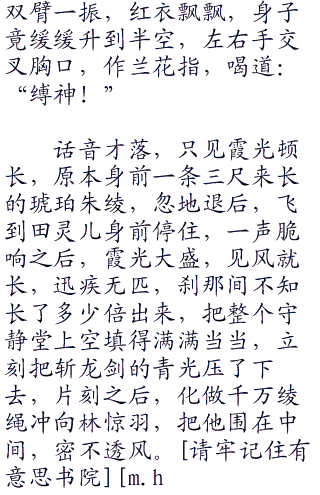 双臂一振，红衣飘飘，身子
竟缓缓升到半空，左右手交
叉胸口，作兰花指，喝道：
“缚神！”
话音才落，只见霞光顿
长，原本身前一条三尺来长
的琥珀朱绫，忽地退后，飞
到田灵儿身前停住，一声脆
响之后，霞光大盛，见风就
长，迅疾无匹，刹那间不知
长了多少倍出来，把整个守
静堂上空填得满满当当，立
刻把斩龙剑的青光压了下
去，片刻之后，化做千万绫
绳冲向林惊羽，把他围在中
间，密不透风。[请牢记住有
意思书院][m.h